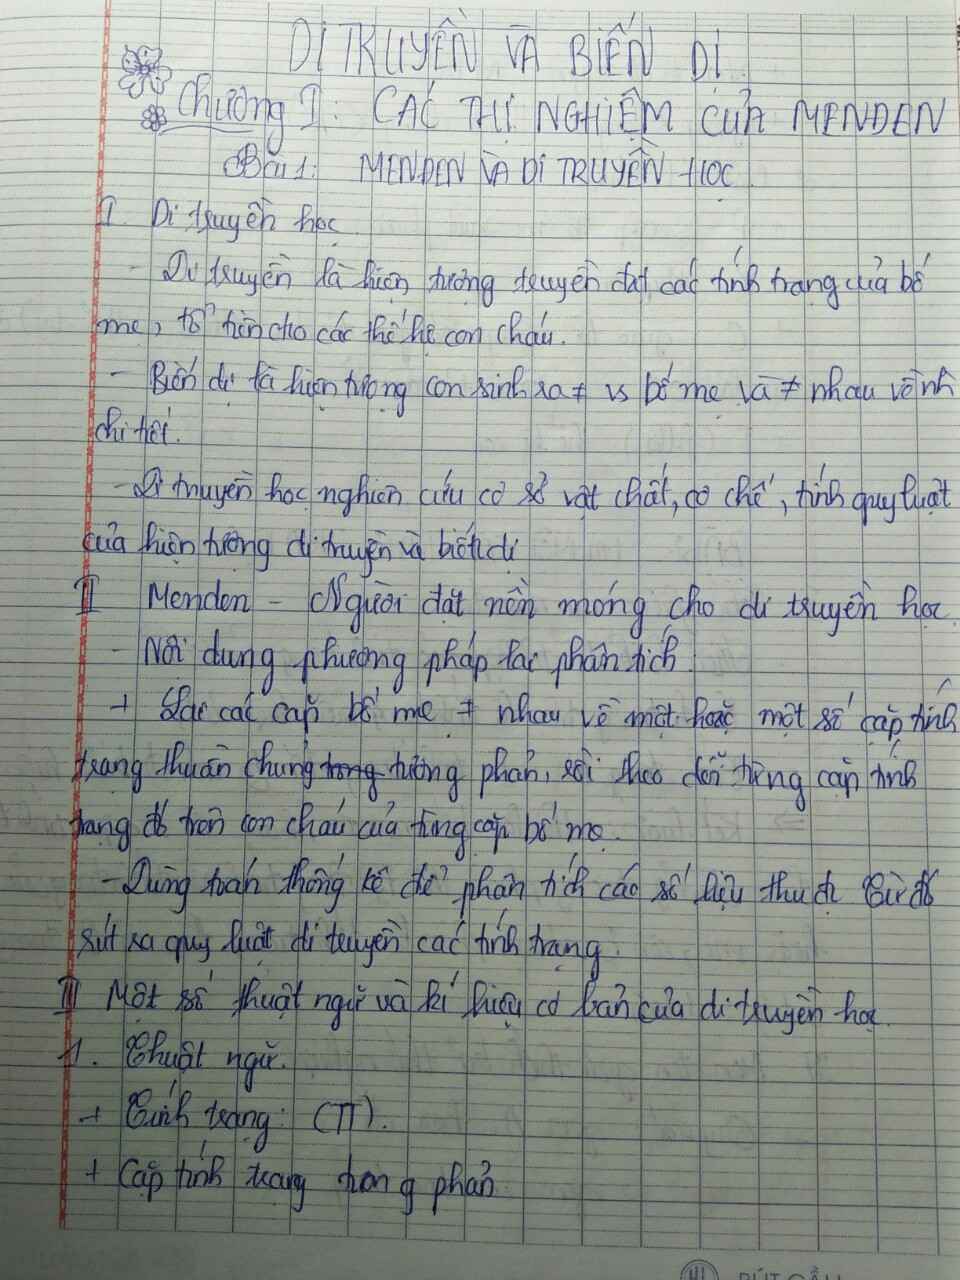 DI TRUYỀN VÀ BIẾN DỊ
Chương I: CÁC THÍ NGHIỆM CỦA MENDEN
Bài 1: MENDEN VÀ DI TRUYỀN HỌC
I. Di truyền học
- Di truyền là hiện tượng truyền đạt các tính trạng của bố
mẹ, tổ tiên cho các thế hệ con cháu.
- Biến dị là hiện tượng con sinh ra ≠ vs bố mẹ và ≠ nhau về nh
chi tiết.
- Di truyền học nghiên cứu cơ sở vật chất, cơ chế, tính quy luật
của hiện tượng di truyền và biến dị
II Menden - Người đặt nền móng cho di truyền học
- Nội dung phương pháp lai phân tích:
+ Lai các cặp bố mẹ ≠ nhau về một hoặc một số cặp tính
trạng thuần chủng tương phản, rồi theo dõi từng cặp tính
trạng đó trên con cháu của từng cặp bố mẹ.
- Dùng toán thống kê để phân tích các số liệu thu đc. Từ đó
rút ra quy luật di truyền các tính trạng.
III Một số thuật ngữ và kí hiệu cơ bản của di truyền học
1. Thuật ngữ.
+ Tính trạng: (TT).
+ Cặp tính trạng tương phản
BÚT